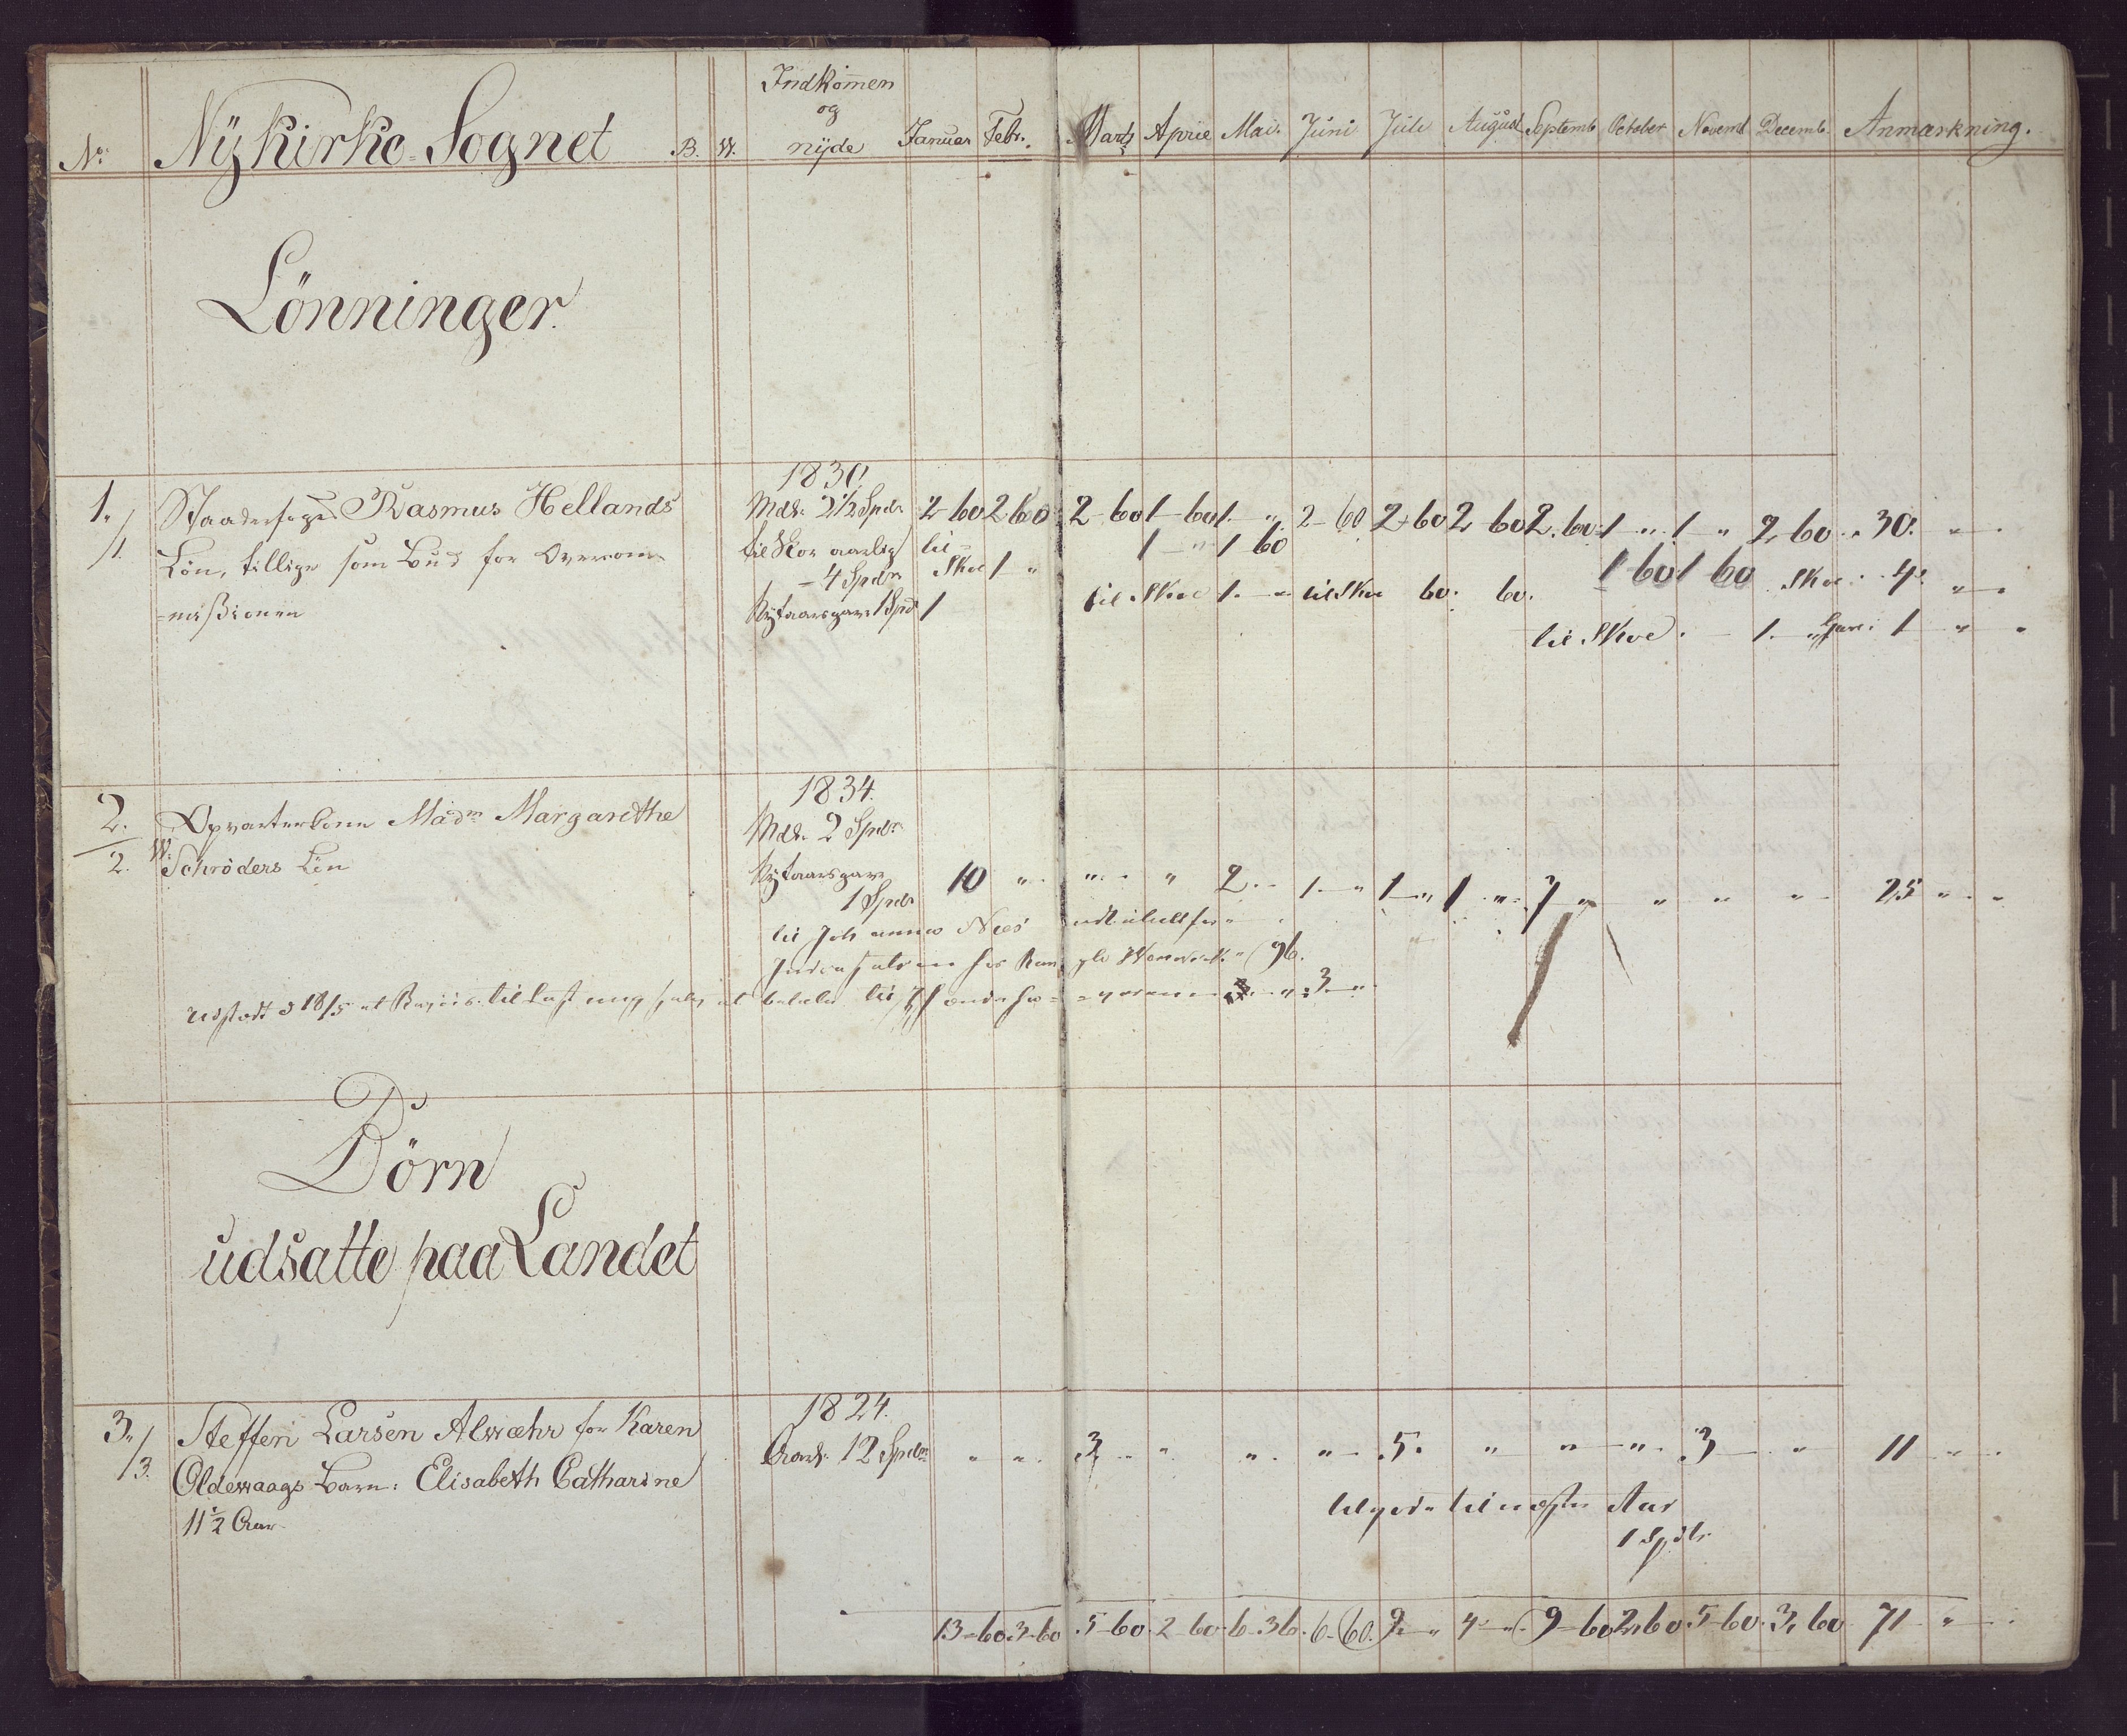 No. Nÿkirke-Sognet B. W. Indkommen og nÿde Januar Febr. Marts April Mai. Juni Juli August Septemb. October Novemb. Decemb. Anmærkning.
Lönninger.
1830.
1. Rasmus Hellands Mdl. 2½ Spdr 2-60 2 60 2-60 1-60 1. „ 2-60 2-60 2 60 2. 60 1 „ 1 „ 2 60 „ 30. „
1. Lön, tillige som Bud for Overcom- til Skoe aarlig til 1 „ 1 60 1 60 1 60 Skoe 4. „
- 4 Spdr Skoe 1 „ til Skoe 1. „ til Skoe 60. 60.
-missionen Nÿtaarsgave 1 Spdr 1 til Skoe. - 1. „ Gave: 1 „
1834.
2. Opvarterkone Madm Margarethe Mdl. 2 Spdr
2. W. Schröders Lön Nÿtaarsgave 10 „ „ „ 2. 1. „ 1 „ 1 „ 7 „ „ „ „ 25 „
1 Spdr
til
96.
18/5 at til at betale til 3 „
Börn
udsatte paa Landet
1824.
3. Steffen Larsen Alwæhr for Karen
3. Oldewaags Barn: Elisabeth Catharine Aarl. 12 Spdr „ „ 3 „ „ „ 5. „ „ „ 3 „ 11 „
11½ Aar til næste Aar
1 Spdlr
13-60 3-60 5-60 2-60 6-36. 6-60. 9 „ 4 „ 9-60 2 60 5-60 3, 60 71 „